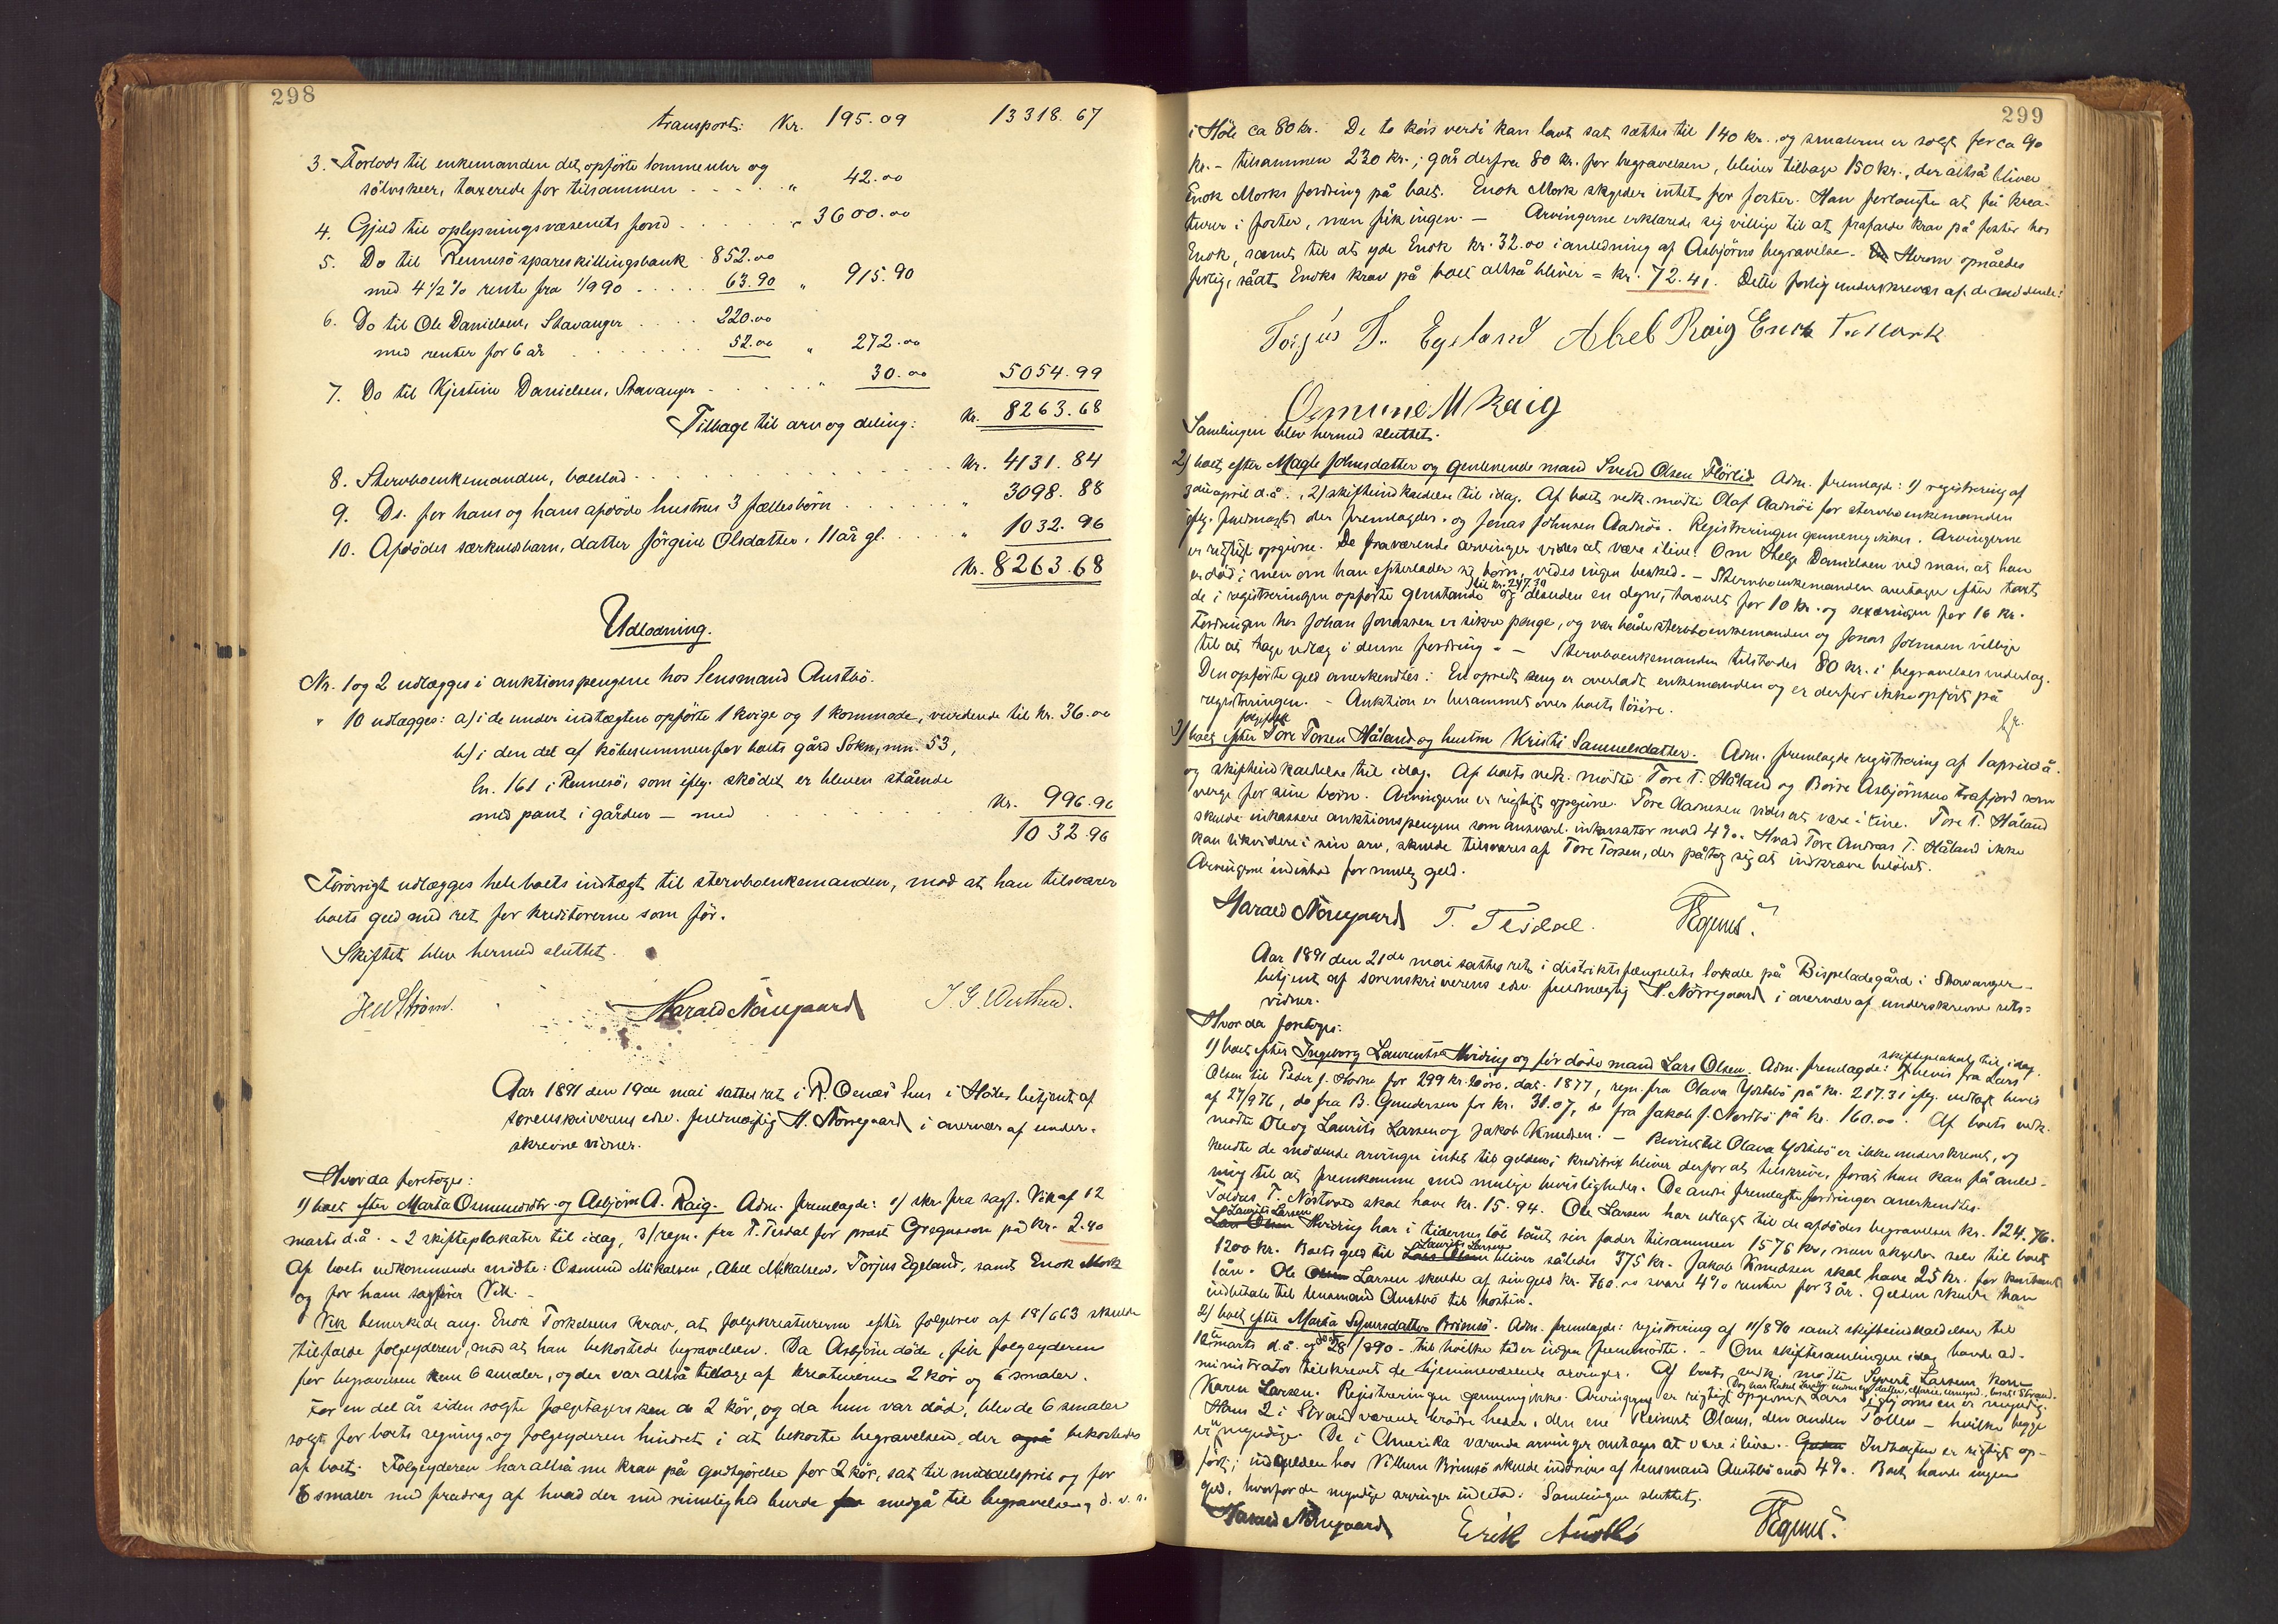 298
transport: Kr. 195.09 13318.67
3. Forlods til enkemanden det opförte lommeuhr og
sölvskeer, taxerede for tilsammen . . . . . „ 42.00
4. Gjæld til oplysningsvæsenets fond . . . . . „ 3600.00
5. Do til Rennesö spareskillingsbank 852.00
med 4½% rente fra 1/9 90 . . . . . 63.90 „ 915.90
6. Do til Ole Danielsen, Stavanger . . . . 220.00
med renter for 6 år . . . . . . . 52.00 „ 272.00
7. Do til Kjestine Danielsen, Stavanger . . . . . . „ 30.00 5054.99
Tilbage til arv og deling: Kr. 8263.68
8. Stervboenkemanden, boeslod . . . . . . . . . . Kr. 4131.84
9. Ds. for hans og hans afdöde hustrus 3 fællesbörn . . . . . . „ 3098.88
10. Afdödes særkuldsbarn, datter Jörgine Olsdatter, 11 år gl. . . . . „ 1032.96
Kr. 8263.68
Udlodning.
Nr. 1 og 2 udlægges i auktionspengene hos lensmand Austbö.
" 10 udlægges: a) i de under indtægten opförte 1 kvige og 1 kommode, vurderede til kr. 36.00
b) i den del af köbesummen for boets gård Sokn, mn. 53,
ln. 161 i Rennesö, som iflg. sködet er bleven stående
med pant i gården — med . . . . . . . Kr. 996.96
1032.96
Forövrigt udlægges hele boets indtægt til stervboenkemanden, mod at han tilsvarer
boets gjeld med ret for kreditorerne som för.
Skiftet blev hermed sluttet.
Harald Nörregaard
Aar 1891 den 19de mai sattes ret i R. Oenæs' hus i Höle, betjent af
sorenskriverens edsv. fuldmægtig H. Nörregaard i overvær af under-
skrevne vidner.
Hvor da foretoges:
1) boet efter Marta Osmundsdtr. og Asbjörn A. Raig. Adm. fremlagde: 1) skr. fra sagf. Vik af 12
marts d.å. - 2 skifteplakater til idag, 3) regn. fra T. Tesdal for præst Gregussen på kr. 2.40
Af boets vedkommende mödte: Osmund Mikalsen, Abel Mikalsen, Torjus Egeland, samt Enok Mork
og for ham sagförer Vik. -
Vik bemerkede ang. Enok Torkelsens krav, at folgekreaturerne efter folgebrev af 19/6 63 skulde
tilfalde folgeyderen, mod at han bekostede begravelsen. Da Asbjörn döde, fik folgeyderen
for begravelsen kun 6 smaler, og der var altså tilbage af kreaturerne 2 kör og 6 smaler.
For en del år siden solgte folgetagersken de 2 kör, og da hun var död, blev de 6 smaler
solgt for boets regning og folgeyderen hindret i at bekoste begravelsen, der også bekostedes
af boet. Folgeyderen har altså nu krav på godtgörelse for 2 kör, sat til middelspris og for
6 smaler med fradrag af hvad der med rimelighed burde for medgå til begravelsen, d. v. s.
299
i Höle ca 80 kr. De to körs verdi kan lavt sat sættes til 140 kr. og smalerne er solgt for ca 90
kr. - tilsammen 230 kr.; går derfra 80 kr. for begravelsen, bliver tilbage 150 kr., der altså bliver
Enok Morks fordring på boet. Enok Mork skylder intet for foster. Han forlangte at få krea-
turer i foster, men fik ingen. — Arvingerne erklærede sig villige til at frafalde krav på foster hos
Enok, samt til at yde Enok kr. 32.00 i anledning af Asbjörns begravelse. Herom opnåedes
forlig, sådt. Enoks krav på boet altså bliver = kr. 72.41. Dette forlig underskreves af de mödende:
Torjus T. Egeland Abel Raig Enok T. Mork
Osmund M Raig
Samlingen blev hermed sluttet.
2) boet efter Magle Johnsdatter og gjenlevende mand Svend Olsen Flörlid. Adm. fremlagde: 1) registrering af
3die april d.å., 2) skifteindkaldelse til idag. Af boets vedk. mödte Olaf Aadnöi for stervboenkemanden
iflg. fuldmagt der fremlagdes, og Jonas Johnsen Aadnöi. Registreringen gjennemgikkes. Arvingerne
er rigtigt opgivne. De fraværende arvinger vides at være ilive. Om Helge Danielsen ved man, at han
er död; men om han efterlader sig börn, vides ingen besked. - Stervboenkemanden overtager efter taxt
til kr. 247.30
de i registreringen opförte gjenstande og desuden en dyne, taxeret for 10 kr. og sexæringen for 16 kr.
Fordringen hos Johan Jonassen er sikre penge, og var både stervboenkemanden og Jonas Johnsen villige
til at tage udlæg i denne fordring. - Stervboenkemanden tilstodes 80 kr. i begravelsesudlæg.
Den opförte gjeld anerkendtes. En opredt seng er overladt enkemanden og er derfor ikke opfört på
registreringen. - Auktion er berammet over boets lösöre.
3) boet efter Tore Torsen Håland og hustru Kristi Samuelsdatter. Adm. fremlagde registrering af 1 april d.å.
og skifteindkaldelse til idag. Af boets vedk. mödte Tore T. Håland og Börre Asbjörnsen Frafjord som
verge for sine börn. Arvingerne er rigtigt opgivne. Tore Aanensen vides at være i live. Tore T. Håland
skulde inkassere auktionspengene som ansvarl. inkassator mod 4%. Hvad Tore Andreas T. Håland ikke
kan likvidere i sin arv, skulde tilsvares af Tore Torsen, der påtog sig at indkræve belöbet.
Arvingerne indestod for mulig gjeld.
Harald Nörregaard T. Tesdal.
Aar 1891 den 21de mai sattes ret i distriktsfængselets lokale på Bispeladegård i Stavanger -
betjent af sorenskriverens edsv. fuldmægtig H. Nörregaard i overvær af underskrevne rets-
vidner.
Hvor da foretoges:
1) boet efter Ingeborg Lauritsdtr Hviding og för döde mand Lars Olsen. Adm. fremlagde: skifteplakat til idag, bevis fra Lars
Olsen til Peder J. Hodne for 299 kr. 60 öre, dat. 1877, regn. fra Olava Goltebö på kr. 217.31 iflg. vedlagt bevis
af 27/9 76, do fra B. Gundersen for kr. 31.07, do fra Jakob J. Nordbö på kr. 160.00. Af boets vedk.
mödte Ole og Laurits Larsen og Jakob Knudsen. - Beviset til Olava Goltebö er ikke underskrevet, og
kendte de mödende arvinger intet til gjelden; kreditrix bliver derfor at tilskrive, forat hun kan få anled-
ning til at fremkomme med mulige bevisligheder. De andre fremlagte fordringer anerkendtes.
Toldus T. Nöstved skal have kr. 15.94. Ole Larsen har udlagt til de afdödes begravelser kr. 124.76.
Laurits Larsen
Lars Olsen Hviding har i tidernes löb lånt sin fader tilsammen 1575 kr., men skylder selv til boet
Laurits Larsen
1200 kr. Boets gjeld til Lars Olsen bliver således 375 kr. Jakob Knudsen skal have 25 kr. for kontant
lån. Ole Olsen Larsen skulde af sin gjeld kr. 760.00 svare 4% renter for 3 år. Gjelden skulde han
indbetale til lensmand Austbö til hösten.
2) boet efter Marta Syvertsdatter Brimsö. Adm. fremlagde: registrering af 11/8 90 samt skifteindkaldelser til
10de marts d.å. og do 28/8 90 - til hvilke tider ingen fremmödte. - Om skiftesamlingen idag havde ad-
ministrator tilskrevet de hjemmeværende arvinger. Af boets vedk. mödte Syvert Larsen, kone
Karen Larsen. Registreringen gjennemgikkes. Arvingerne er rigtigt opgivne. Lars Sigbjörnsen er myndig.
Hans 2 i Strand værende brödre heder, den ene Reinert Olaus, den anden Tollen - hvilke begge
er myndige. De i Amerika værende arvinger antages at være ilive. Indtægten er rigtigt op-
fört; indgjelden hos Villum Brimsö skulde inddrives af lensmand Austbö mod 4%. Boet havde ingen
gjeld, hvorfor de myndige arvinger indestod. Samlingen sluttet.
Harald Nörregaard Erik Austbö